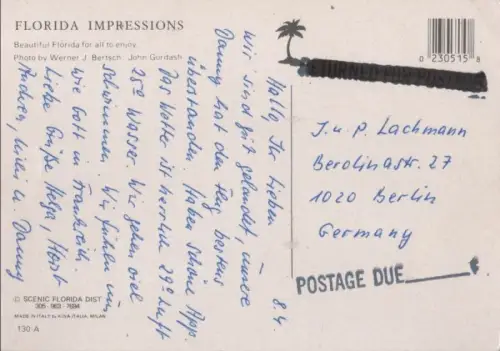 FLORIDA IMPRESSIONS
Beautiful Florida for all to enjoy.
Photo by Werner J. Bertsch; John Gurdash
8.4.
Hallo, Ihr Lieben
Wir sind gut gelandet, unsere
Danny hat den Flug bestens
überstanden. Haben schöne App.
Das Wetter ist herrlich 29° Luft
25° Wasser. Wir gehen viel
schwimmen. Wir fühlen uns
wie Gott in Frankreich.
Liebe Grüße Helga, Horst
Andrea, u. Danny
0 230515 8
J. u. P. Lachmann
Berolinastr. 27
1020 Berlin
Germany
POSTAGE DUE
© SCENIC FLORIDA DIST
MADE IN ITALY by KINA ITALIA, MILAN
130 A